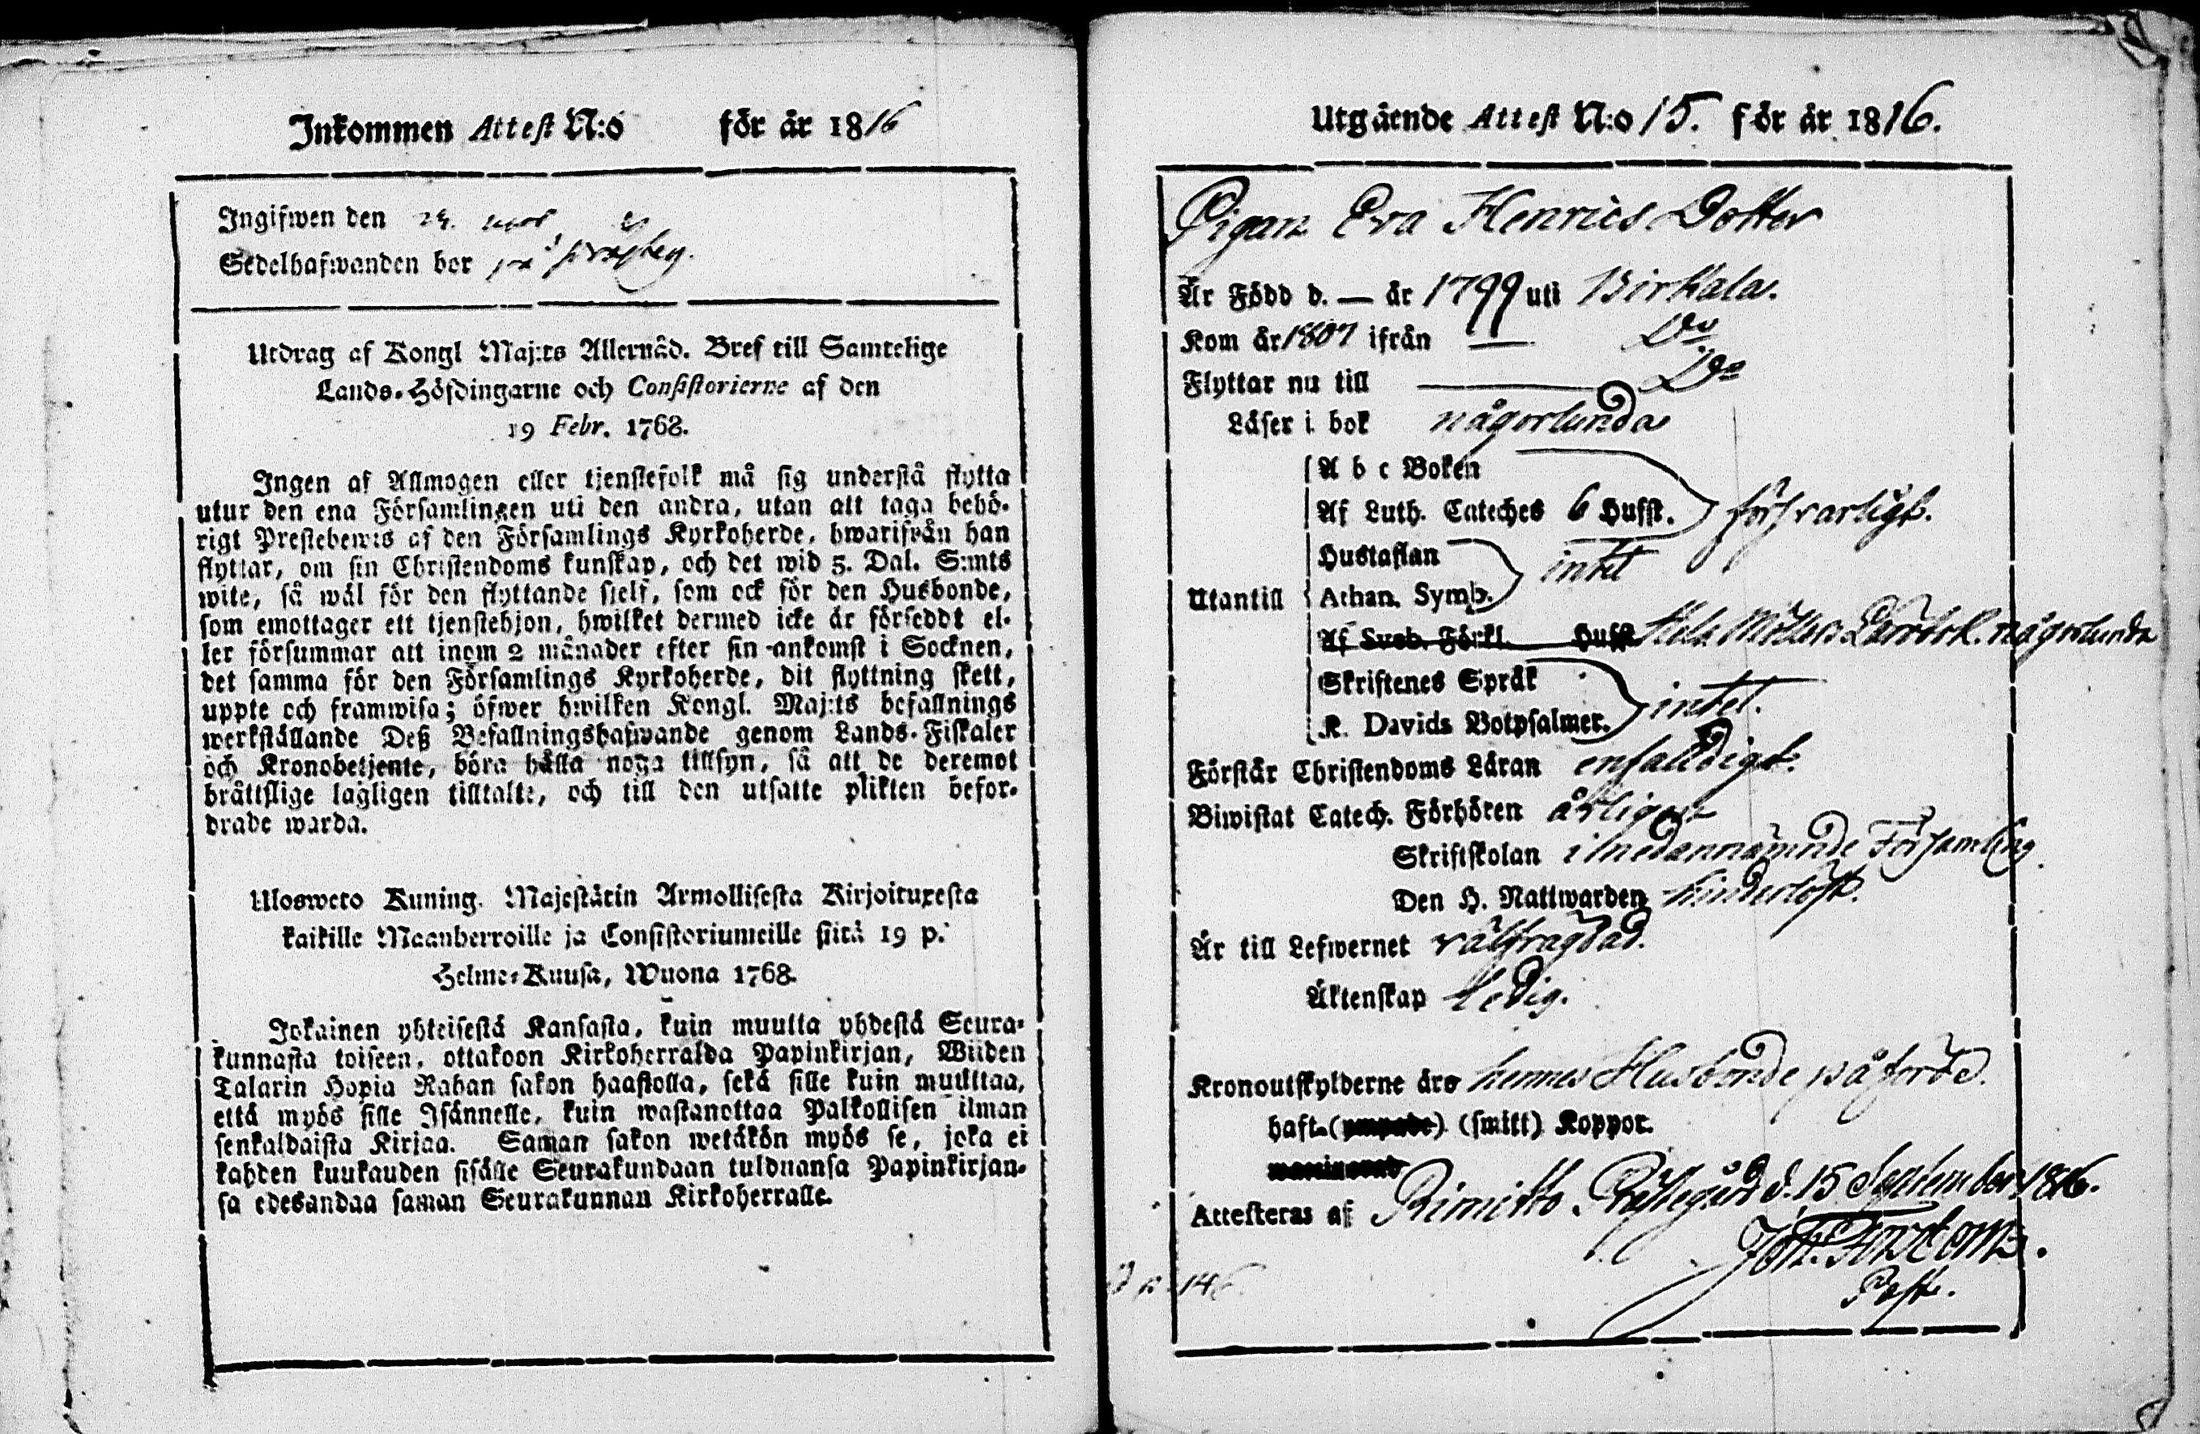 Inkommen Attest N:o för år 1816
Ingifwen den 24.
Sedelhafwanden bor på
Utdrag af Kongl Maj:ts Allernåd. Bref till Samtelige
Lands-Höfdingarne och Consistorierne af den
19 Febr. 1768.
Ingen af Allmogen eller tjenstefolk må sig understå flytta
utur den ena Församlingen uti den andra, utan att taga behö-
rigt Prestebewis af den Församlings Kyrkoherde, hwarifrån han
flyttar, om sin Christendoms kunskap, och det wid 5. Dal. S:mts
wite, så wäl för den flyttande sjelf, som ock för den Husbonde,
som emottager ett tjenstehjon, hwilket dermed icke är försedt el-
ler försummar att inom 2 månader efter sin ankomst i Socknen,
det samma för den Församlings Kyrkoherde, dit flyttning skett,
uppte och framwisa; öfwer hwilken Kongl. Maj:ts befallnings
werkställande Deß Befallningshafwande genom Lands-Fiskaler
och Kronobetjente, böra hålla noga tillsyn, så att de deremot
bråttslige lagligen tilltalte, och till den utsatte plikten befor-
drade warda.
Ulosweto Kuning. Majestätin Armollisesta Kirjoituxesta
kaikille Maanherroille ja Consistoriumeille siitä 19 p.
Helme-Kuusa, Wuona 1768.
Jokainen yhteisestä Kansasta, kuin muutta yhdestä Seura-
kunnasta toiseen, ottakoon Kirkoherralda Papinkirjan, Wiiden
Talarin Hopia Rahan sakon haastolla, sekä sille kuin muuttaa,
että myös sille Isännelle, kuin wastanottaa Palkollisen ilman
senkaldaista Kirjaa. Saman sakon wetäkön myös se, joka ei
kahden kuukauden sisälle Seurakundaan tulduansa Papinkirjan-
sa edesandaa saman Seurakunnan Kirkoherralle.
Utgående Attest N:o 15. för år 1816.
Pigan Eva Henrics Dotter
Är Född d. — år 1799 uti Birkala.
Kom år 1807 ifrån — Do
Flyttar nu till — Do
Läser i bok någorlunda
A b c Boken
Af Luth. Cateches 6 Hufst. försvarligt.
Hustaflan
Utantill Athan. Symb. intet
Af Sveb. Förkl. Hufst. Hela Möllers Lärobok. någorlunda
Skriftenes Språk
K. Davids Botpsalmer. intet.
Förstår Christendoms Läran enfalldigt.
Biwistat Catech. Förhören årligen
Skriftskolan i nedannämnde Församling.
Den H. Nattwarden hinderlöst.
Är till Lefwernet välfrägdad.
Äktenskap ledig.
Kronoutskylderne äro hennes Husbonde påförde.
haft (ympade) (smitt) Koppor.
Attesteras af Rimitto Prästegård d. 15 September 1816.
Joh.
Past.
146